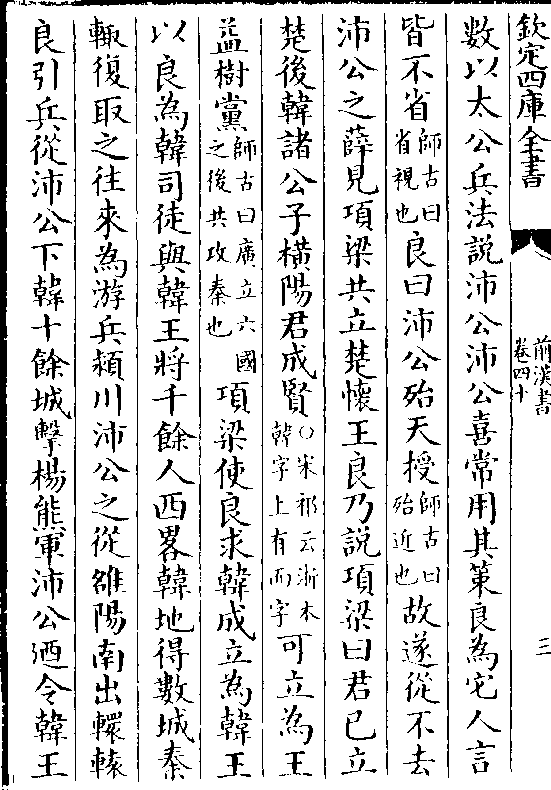 欽定四庫全書
前漢書
卷四十
三
數以太公兵法說沛公沛公喜常用其策良為它人言
皆不省師古曰省視也良曰沛公殆天授師古曰殆近也故遂從不去
沛公之薛見項梁共立楚懷王良乃說項梁曰君已立
楚後韓諸公子橫陽君成賢○宋祁云浙本韓字上有而字可立為王
益樹黨師古曰廣立六國之後共攻秦也項梁使良求韓成立為韓王
以良為韓司徒與韓王將千餘人西畧韓地得數城秦
輒復取之往來為游兵潁川沛公之從雒陽南出轘轅
良引兵從沛公下韓十餘城擊楊熊軍沛公廼令韓王